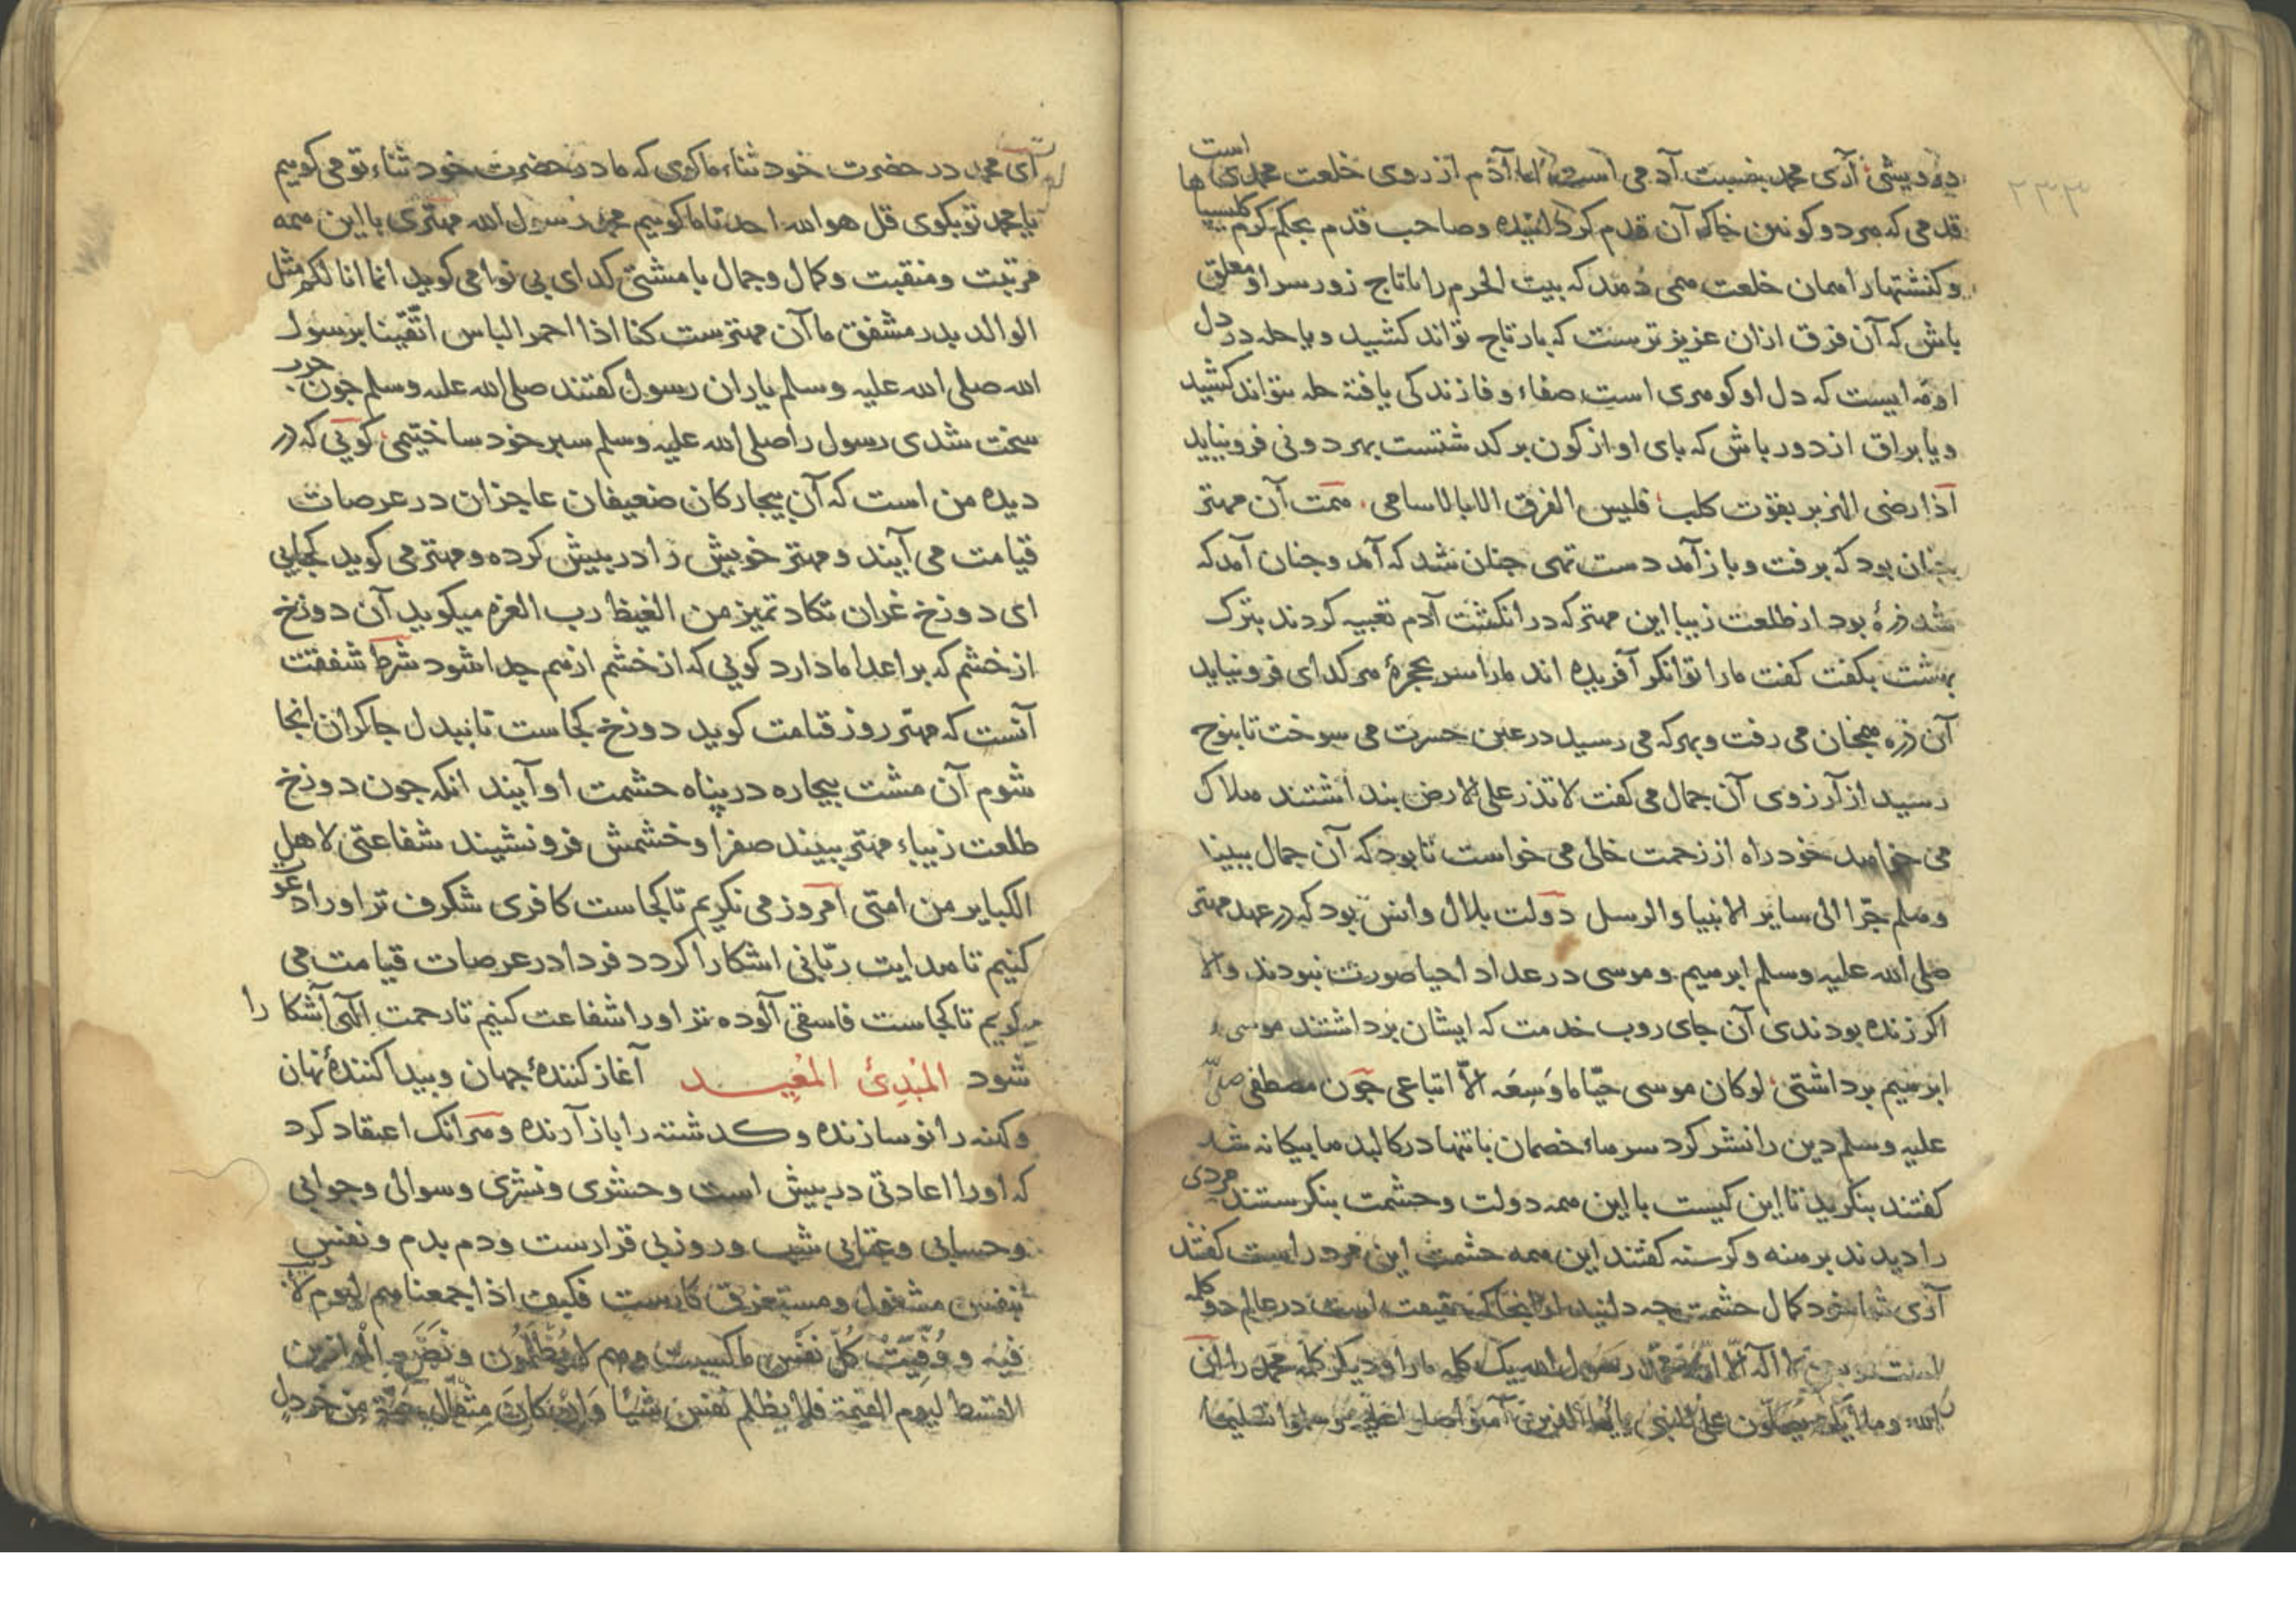 ۲۳۳
درویشی آری محمد بنسبت آدمی است اما آدم از روی خلعت محمدی است
قدمی که هر دو کونین خاک آن قدم کردانیده وصاحب قدم بحکم کرم کلیسیاها
وکنشتها را همان خلعت می دهند که بیت الحرم را تاتاج زور سر او معلق
باش که آن فرق ازان عزیز ترست که بار تاج تواند کشید ویا حله در دل
او نه ایست که دل او کوهری است صفاء وفا زندکی یافتة حله نتواند کشید
ویا براق از دور باش که بای او از کون بر کدشتست بهر دونی فرو نیاید
اذا رضی الهزبر بقوت کلب فلیس الفرق الا بالاسامی همت آن مهتر
جنان بود که برفت وباز آمد دست تهی جنان شد که آمد وجنان آمد که
شد ذرۀ بود از طلعت زیبا این مهتر که در انکشت آدم تعبیه کردند بترک
بهشت بکفت کفت ما را توانکر آفریده اند ما را سر بحجرۀ هر کدای فرو نیاید
آن ذره همجنان می رفت وبهر که می رسید در عین حسرت می سوخت تا بنوح
رسید از آرزوی آن جمال می کفت لا تذر علی الارض بنداشتند هلاک
می خواهد خود راه از زحمت خالی می خواست تا بود که آن جمال ببیند
وهلم جرا الی سایر الانبیا والرسل دولت بلال وانس بود که در عهد مهتر
صلی الله علیه وسلم ابرهیم وموسی در عداد احیا صورت نبودند والا
اکر زنده بودندی آن جای روب خدمت که ایشان برداشتند موسی و
ابرهیم برداشتی لو کان موسی حیا ما وسعه الا اتباعی جون مصطفی صلی
علیه وسلم دین را نشر کرد سرهاء خصمان با تنها در کالبدها بیکانه شد
کفتند بنکرید تا این کیست با این همه دولت وحشمت بنکرستند مردی
را دیدند برهنه وکرسنه کفتند این همه حشمت این مرد راست کفتند
آری شما خود کمال حشمت جه دانید از انجا که حقیقت است در عالم دو کلمه
لا اله الا الله محمد رسول الله یک کلمه ما را ودیکر کلمه محمد را ان
الله وملائکته یصلون علی النبی یایها الذین آمنوا صلوا علیه وسلموا تسلیما
ای محمد در حضرت خود ثناء ما کوی که ما در حضرت خود ثناء تو می کوییم
یا محمد تو بکوی قل هو الله احد تا ما کوییم محمد رسول الله مهتری با این همه
مرتبت ومنقبت وکمال وجمال با مشتی کدای بی نوا می کوید انما انا لکم مثل
الوالد بدر مشفق ما آن مهترست کنا اذا احمر الباس اتقینا برسول
الله صلی الله علیه وسلم یاران رسول کفتند صلی الله علیه وسلم جون حرب
سخت شدی رسول را صلی الله علیه وسلم سبر خود ساختیمی کویی که در
دیده من است که آن بیجارکان ضعیفان عاجزان در عرصات
قیامت می آیند ومهتر خویش را در بیش کرده ومهتر می کوید کجایی
ای دوزخ غران تکاد تمیز من الغیظ رب العزه میکوید آن دوزخ
از خشم که بر اعداء ما دارد کویی که از خشم از هم جدا شود شرط شفقت
آنست که مهتر روز قیامت کوید دوزخ کجاست تا ببدل جاکران انجا
شوم آن مشت بیجاره در پناه حشمت او آیند انکه جون دوزخ
طلعت زیباء مهتر ببیند صفرا وخشمش فرو نشیند شفاعتی لاهل
الکبایر من امتی امروز می نکریم تا کجاست کافری شکرف تر او را دعوة
کنیم تا هدایت ربانی اشکارا کردد فردا در عرصات قیامت می
نکریم تا کجاست فاسقی آلوده تر او را شفاعت کنیم تا رحمت الهی آشکارا
شود المبدئ المعید آغاز کنندۀ جهان وبیدا کنندۀ نهان
وکهنه را نو سازنده وکدشته را باز آرنده وهرانک اعتقاد کرد
که او را اعادتی در بیش است وحشری ونشری وسوالی وجوابی
وحسابی وعتابی شب وروز بی قرارست ودم بدم ونفس
بنفس مشغول ومستغرق کارست فکیف اذا جمعناهم لیوم لا ریب
فیه ووفیت کل نفس ما کسبت وهم لا یظلمون ونضع الموازین
القسط لیوم القیمة فلا یظلم نفس شیئا وان کان مثقال حبة من خردل